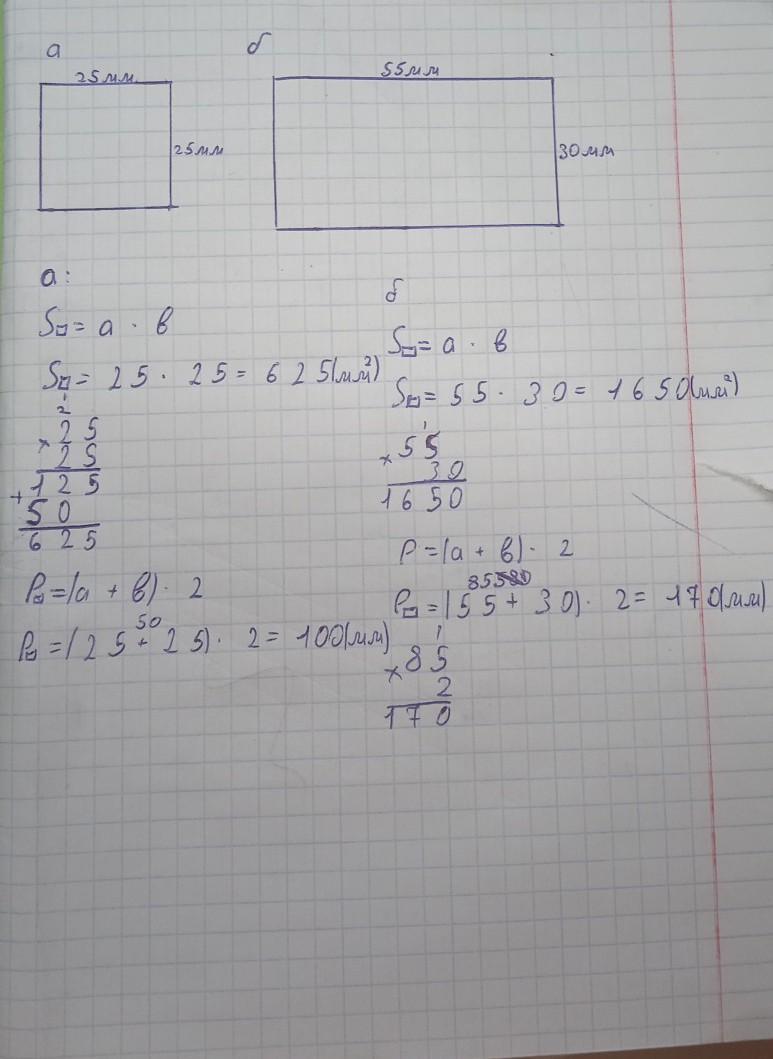 а
25мм
25мм
б
55мм
30мм
а:
S□= а · в
S□= 25 · 25 = 625(мм²)
2
× 25
25
+ 125
50
625
P□=(а + в) · 2
50
P□=(25 + 25) · 2 = 100(мм)
б
S□= а · в
S□= 55 · 30 = 1650(мм²)
1
× 55
30
1650
P =(а + в) · 2
85
P□=(55 + 30) · 2 = 170(мм)
1
× 85
2
170